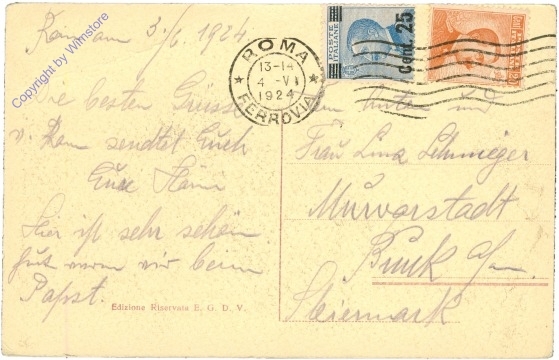 Rom am 3./6. 1924.
Die besten Grüsse
v. Rom sendtet Euch
Eure
Hier ist sehr schön
gut waren wir beim
Papst.
Edizione Riservata E. G. D. V.
ROMA
13-14
4 - VI
1924
FERROVIA
POSTE ITALIANE
Cent. 25
Frau Lina
Murvorstadt
Bruck a/m.
Steiermark
Copyright by Wimstore